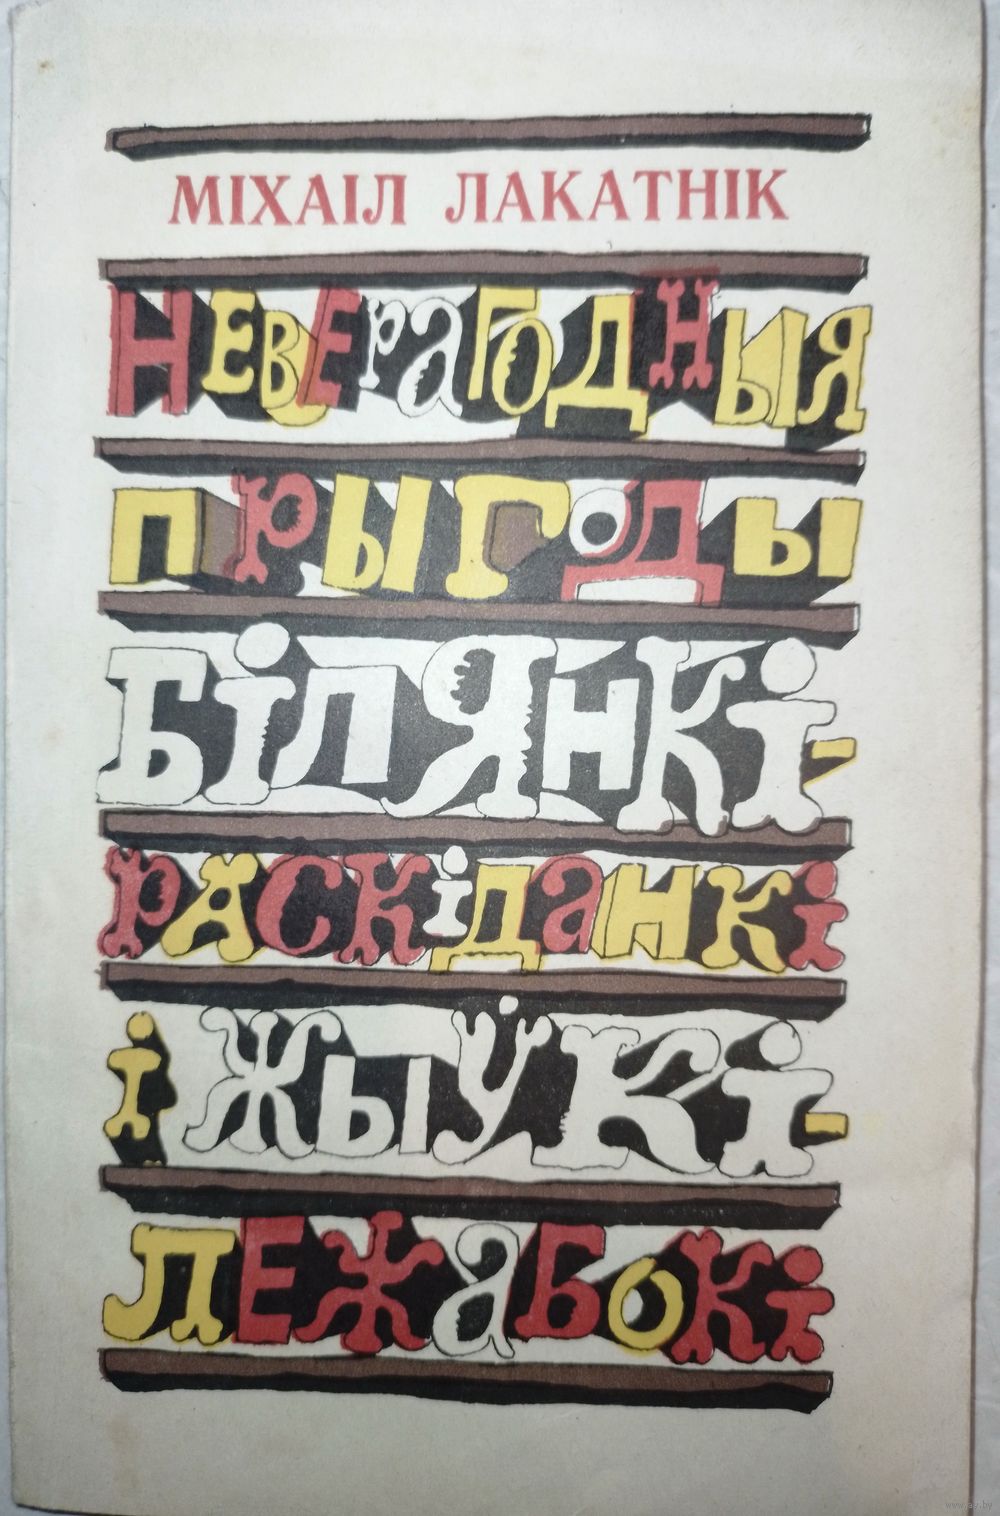 МІХАІЛ ЛАКАТНІК
НЕВЕРАГОДНЫЯ
ПРЫГОДЫ
БІЛЯНКІ-
РАСКІДАНКІ
І ЖЫЎКІ-
ЛЕЖАБОКІ
www.ay.by